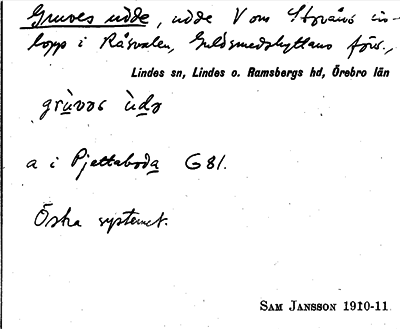 Gruves udde, udde V om Storåns in-
lopp i Råsvalen, Guldsmedshyttans förs.,
Lindes sn, Lindes o. Ramsbergs hd, Örebro län
grùvǝs ùdǝ
a i Pjattaboda G 81.
Östra systemet.
SAM JANSSON 1910-11